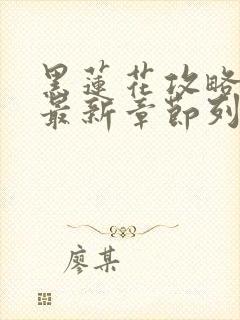 黑蓮花攻略
最新章節列
廖某